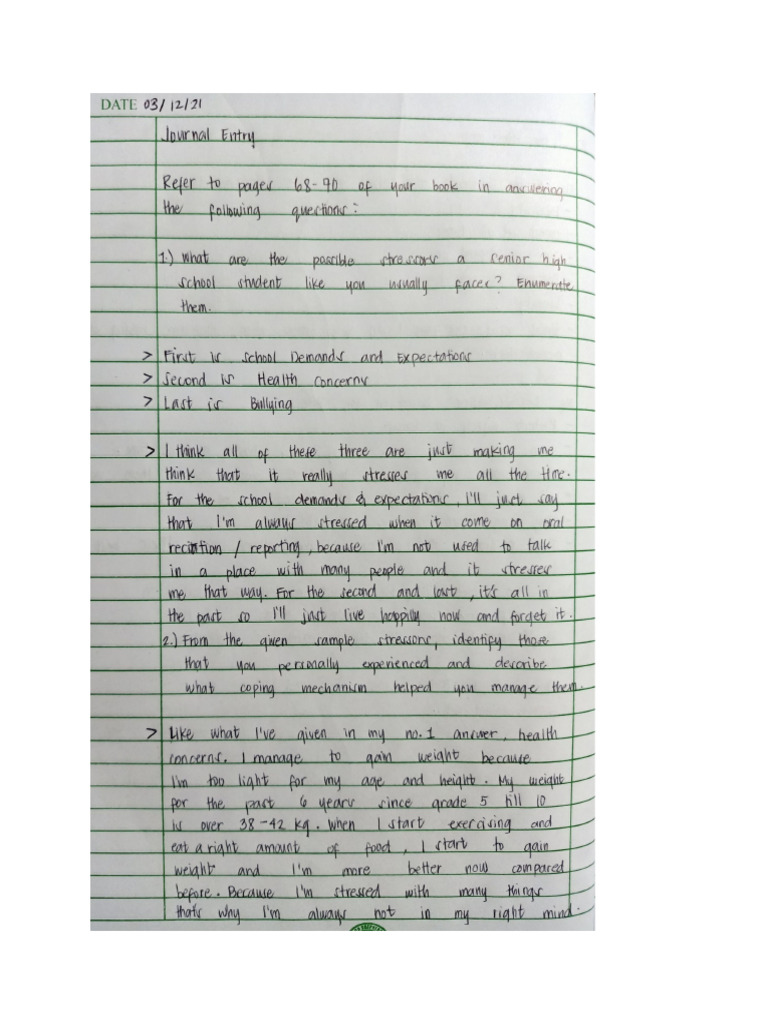 DATE 03/12/21
Journal Entry
Refer to pages 68-70 of your book in answering
the following questions:
1.) What are the possible stressors a senior high
school student like you usually faces? Enumerate
them.
> First is School Demands and Expectations
> Second is Health Concerns
> Last is Bullying
> I think all of these three are just making me
think that it really stresses me all the time.
For the school demands & expectations, I'll just say
that I'm always stressed when it come on oral
recitation / reporting, because I'm not used to talk
in a place with many people and it stresses
me that way. For the second and last, it's all in
the past so I'll just live happily now and forget it.
2.) From the given sample stressors, identify those
that you personally experienced and describe
what coping mechanism helped you manage them.
> Like what I've given in my no.1 answer, health
concerns. I manage to gain weight because
I'm too light for my age and height. My weight
for the past 6 years since grade 5 till 10
is over 38-42 kg. When I start exercising and
eat a right amount of food, I start to gain
weight and I'm more better now compared
before. Because I'm stressed with many things
that's why I'm always not in my right mind.